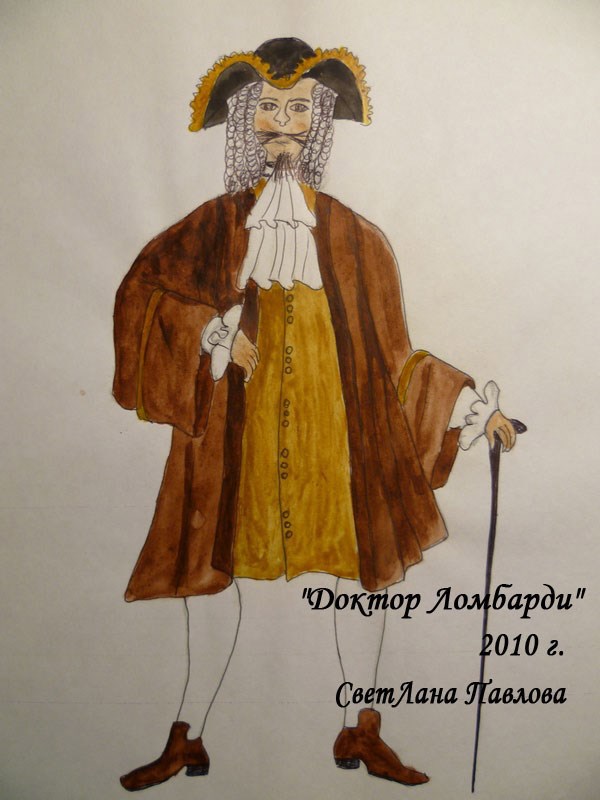 "Доктор Ломбарди"
2010 г.
СветЛана Павлова